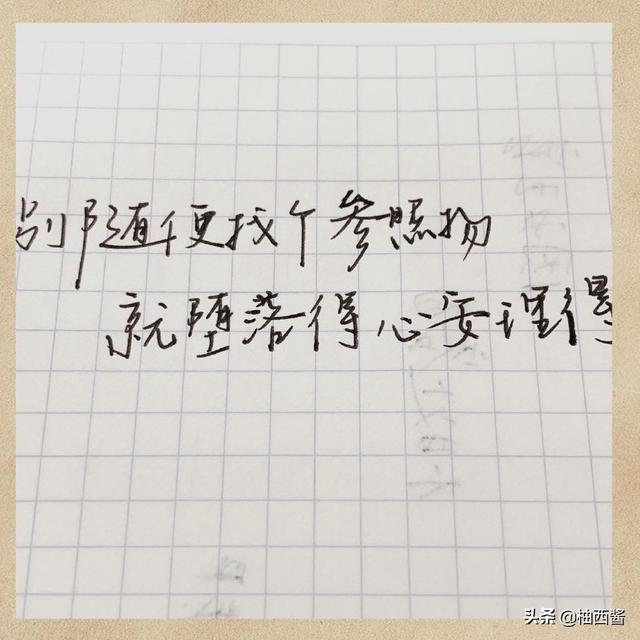 别随便找个参照物
就堕落得心安理得
头条 @柚西酱